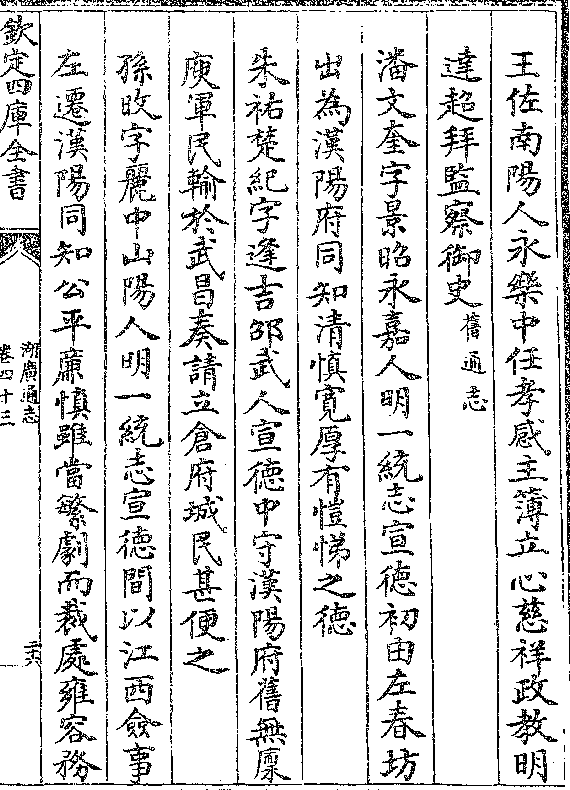 王佐南陽人永樂中任孝感主簿立心慈祥政教明
達超拜監察御史舊通志
潘文奎字景昭永嘉人明一統志宣徳初由左春坊
出為漢陽府同知清慎寛厚有愷悌之徳
朱祐楚紀字逢吉邵武人宣徳中守漢陽府舊無廩
庾軍民輸於武昌奏請立倉府城民甚便之
孫旼字麗中山陽人明一統志宣徳間以江西僉事
左遷漢陽同知公平亷慎雖當繁劇而裁處雍容務
欽定四庫全書
湖廣通志
卷四十三
二十六